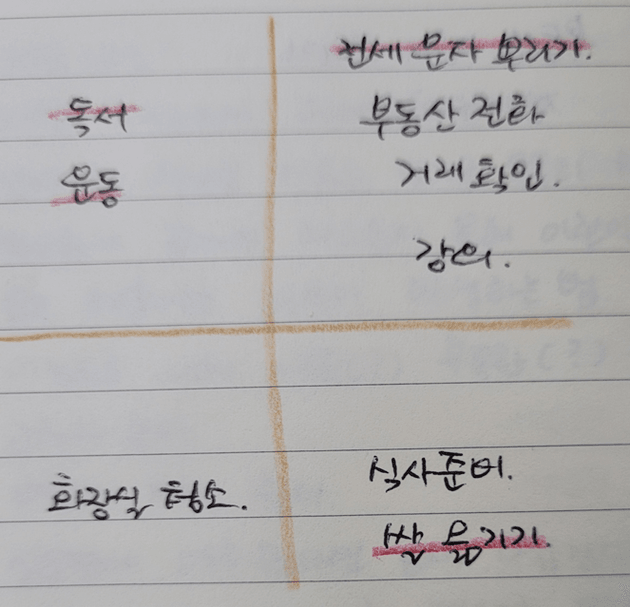 전세 문자 보리기.
독서
부동산 전화
운동
거래 확인.
강의.
식사준비.
화장실 청소.
쌀 옮기기.